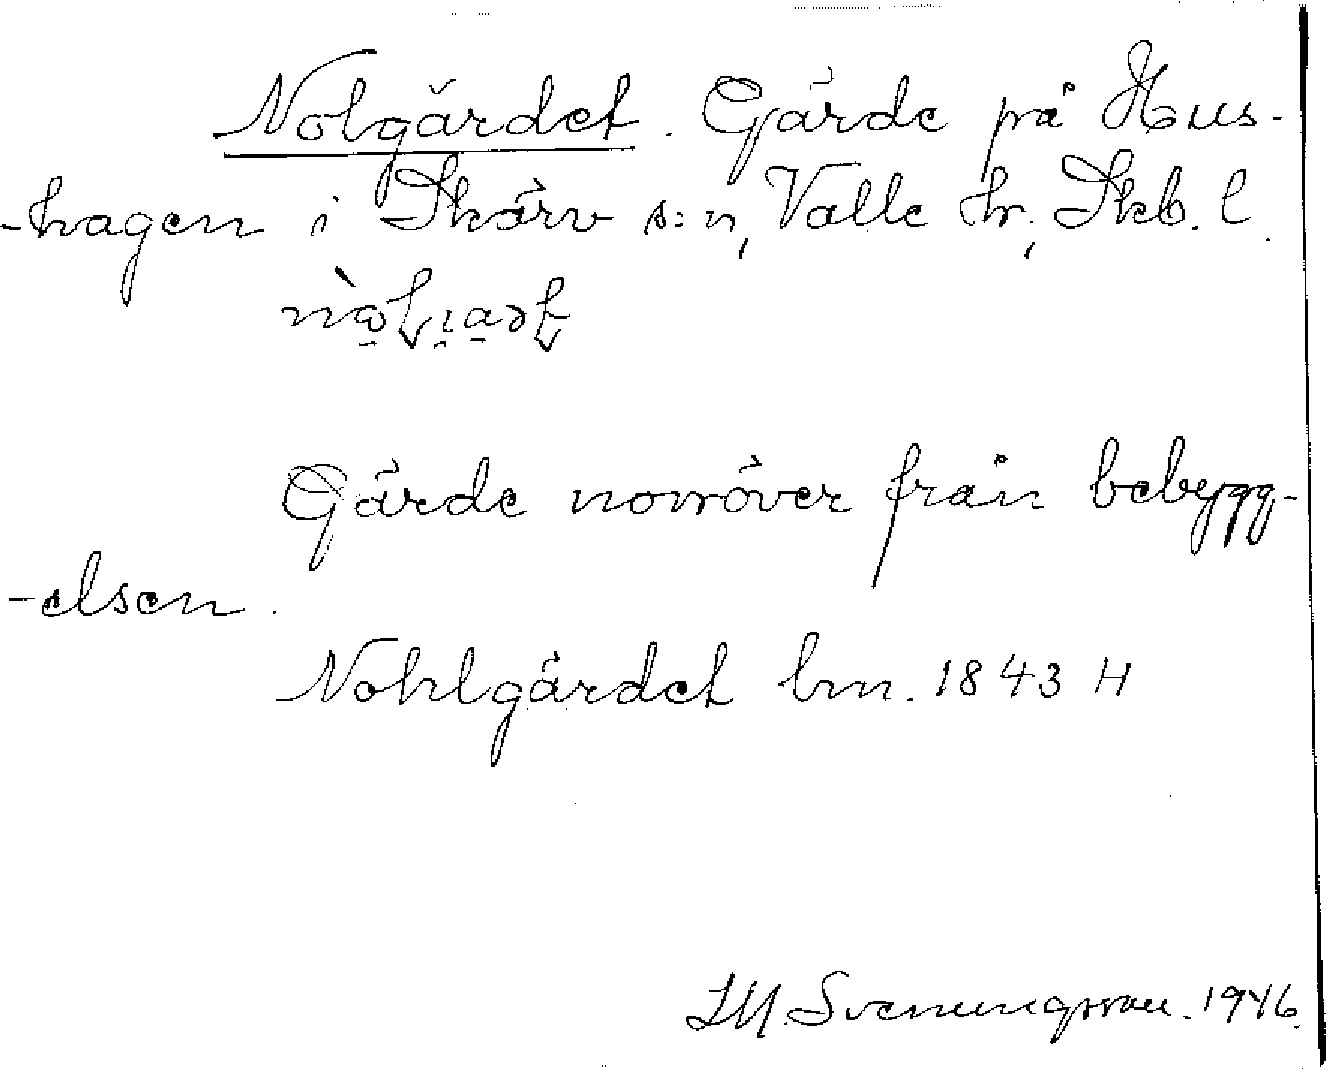 Nolgärdet. Gärde på Hus-
-hagen i Skärv s:n, Valle hr, Skb. l.
Gärde norröver från bebygg-
-elsen.
Nohlgärdet lm. 1843 H
I.M. Svenungsson. 1946.